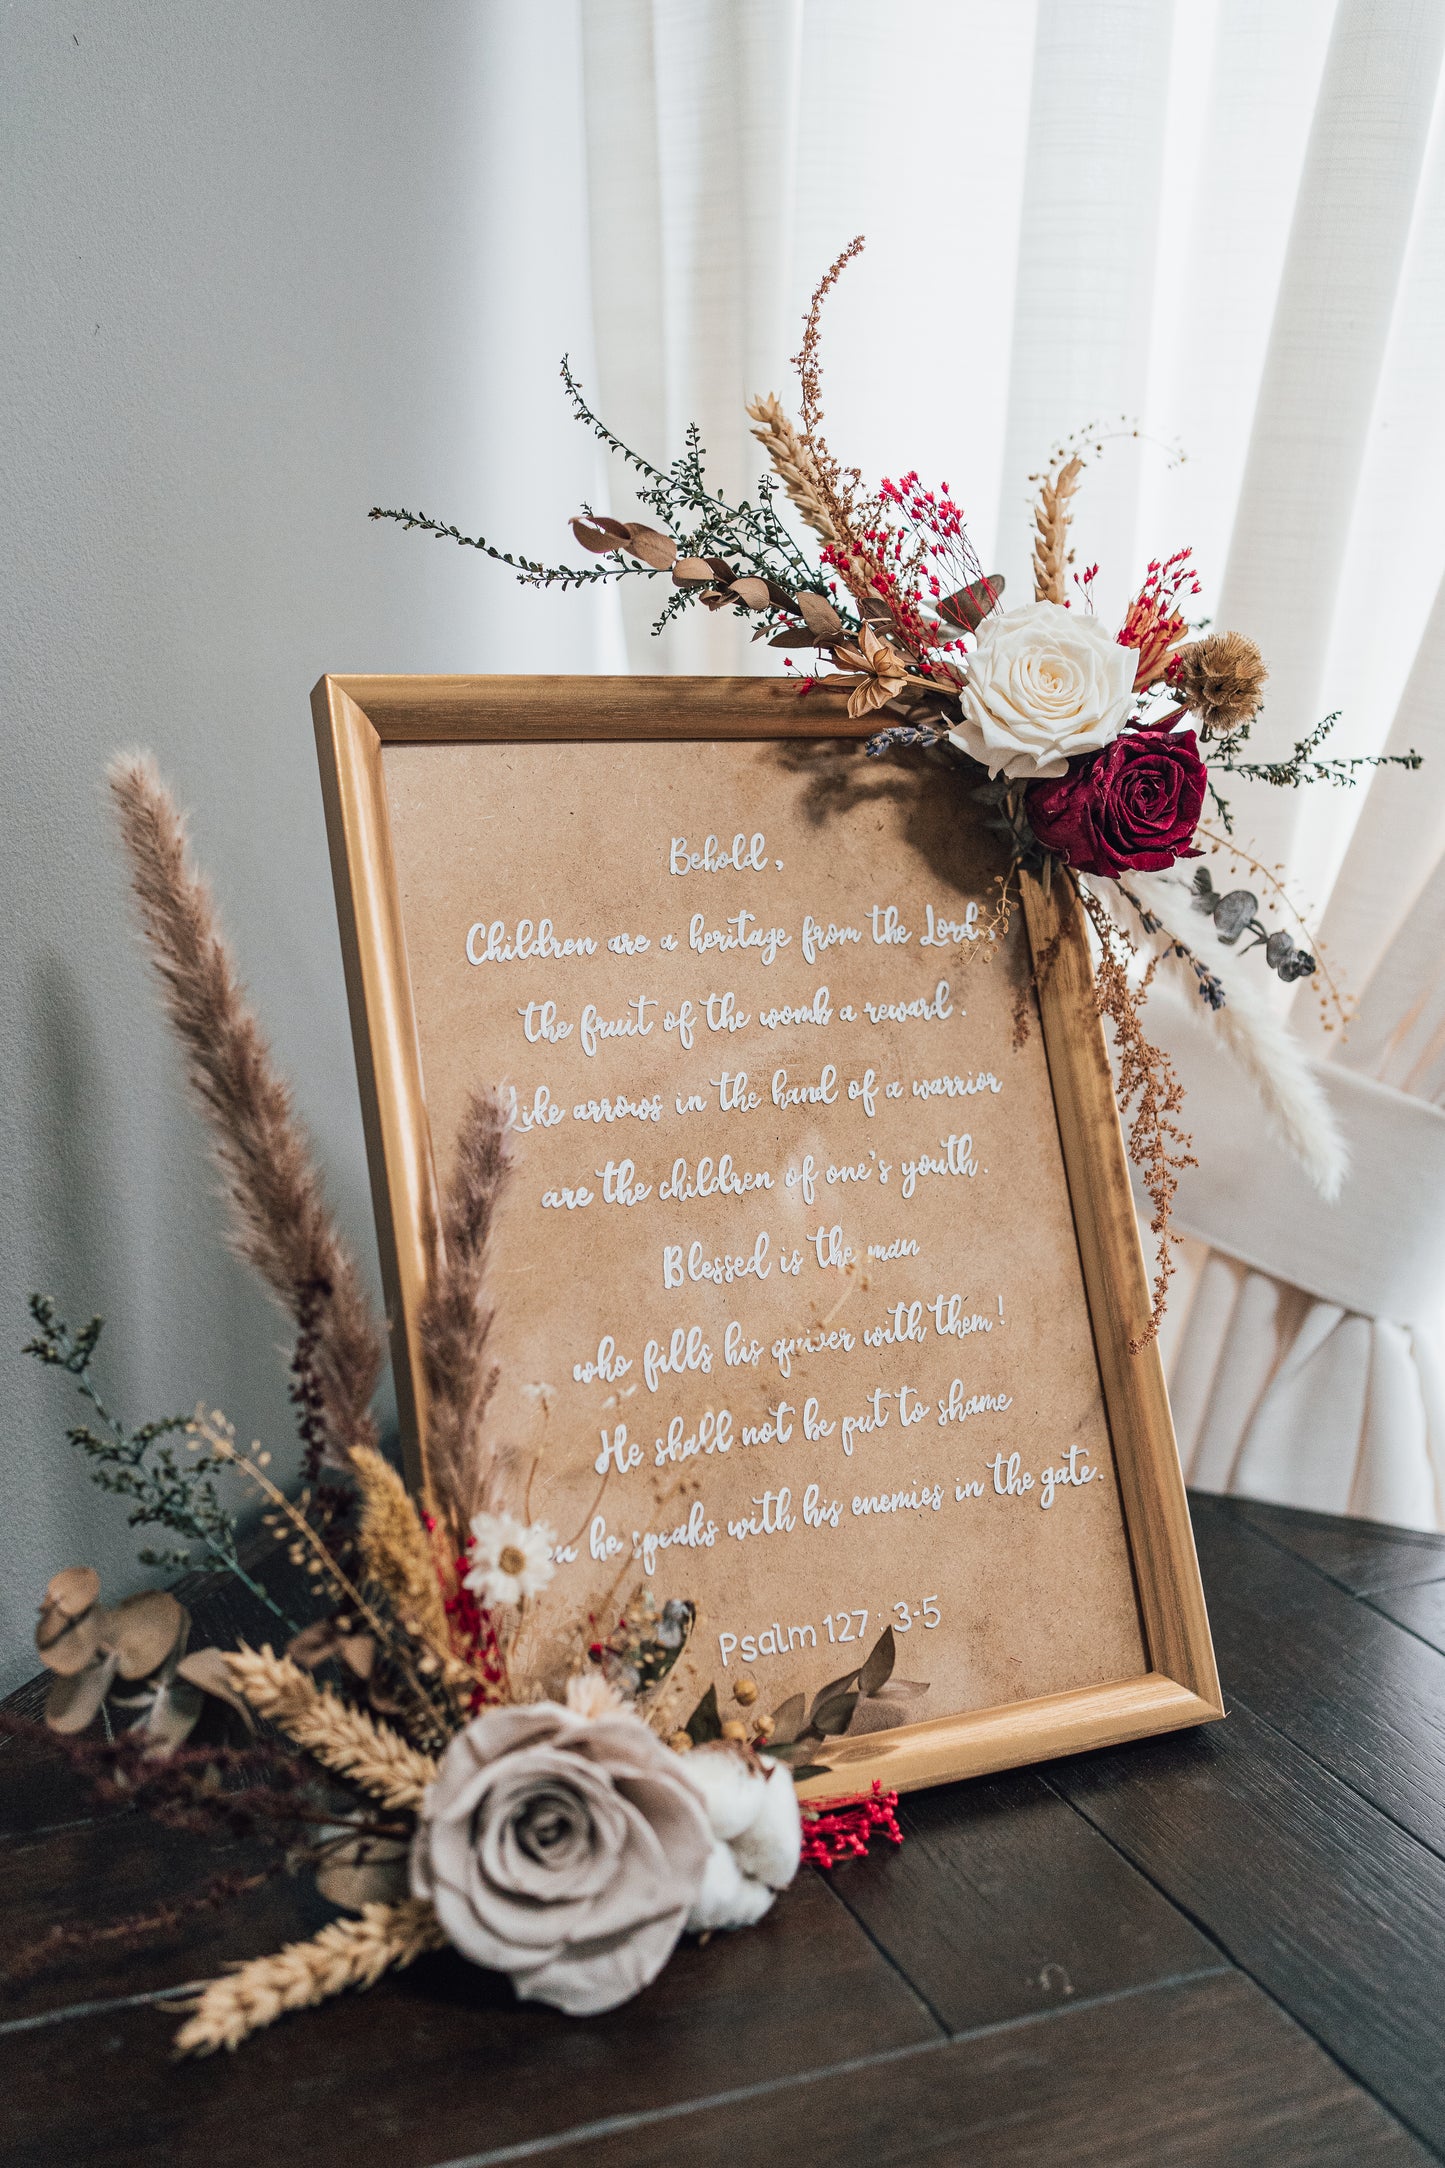 Behold,
Children are a heritage from the Lord,
the fruit of the womb a reward.
Like arrows in the hand of a warrior
are the children of one's youth.
Blessed is the man
who fills his quiver with them!
He shall not be put to shame
he speaks with his enemies in the gate.
Psalm 127:3-5